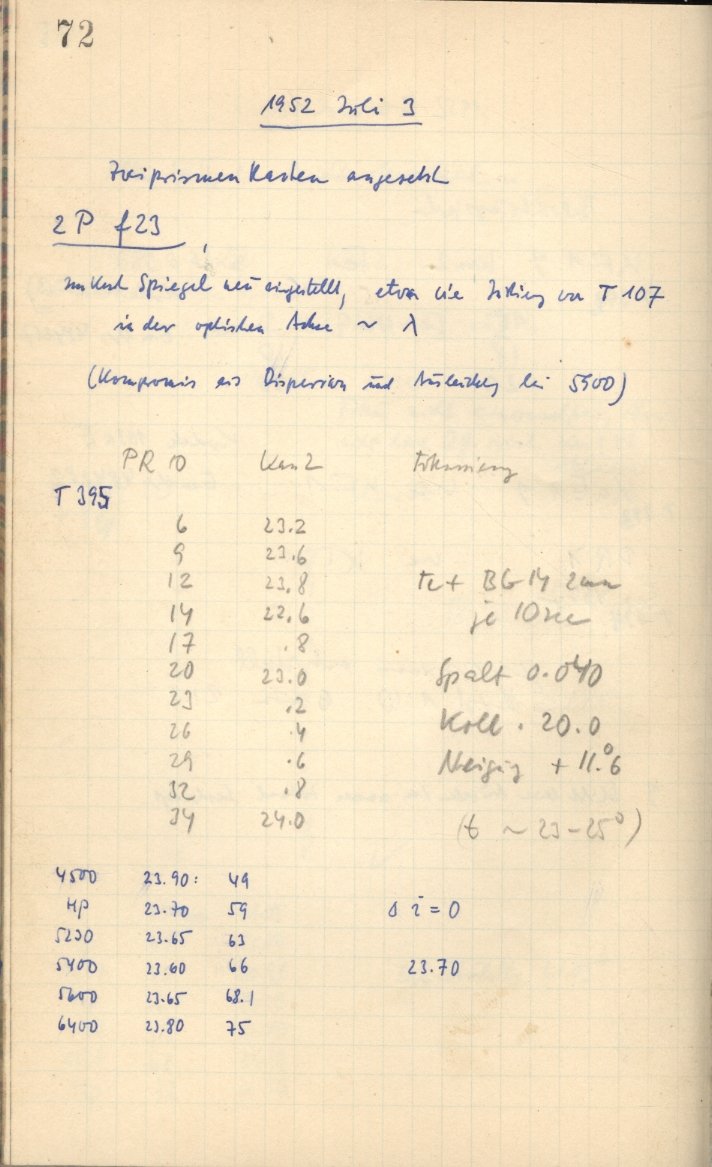 72
1952 Juli 3
Zweiprismen Kasten angesetzt
2 P f23
Spiegel neu eingestellt, etwa wie von T 107
in der optischen Achse ~ λ
(Kompromis aus Dispersion und bei 5400)
PR 10 Kam 2 Fokussierung
T 395
6 23.2
9 23.6
12 23.8 Fe + BG 14 2mm
14 22.6 je 10 sec
17 .8
20 23.0 Spalt 0.040
23 .2
26 .4 Koll. 20.0
29 .6 Neigung + 11.°6
32 .8
34 24.0 (t ~ 23-25°)
4500 23.90: 49
Hβ 23.70 59 Δ i = 0
5230 23.65 63
5400 23.60 66 23.70
5600 23.65 68.1
6400 23.80 75